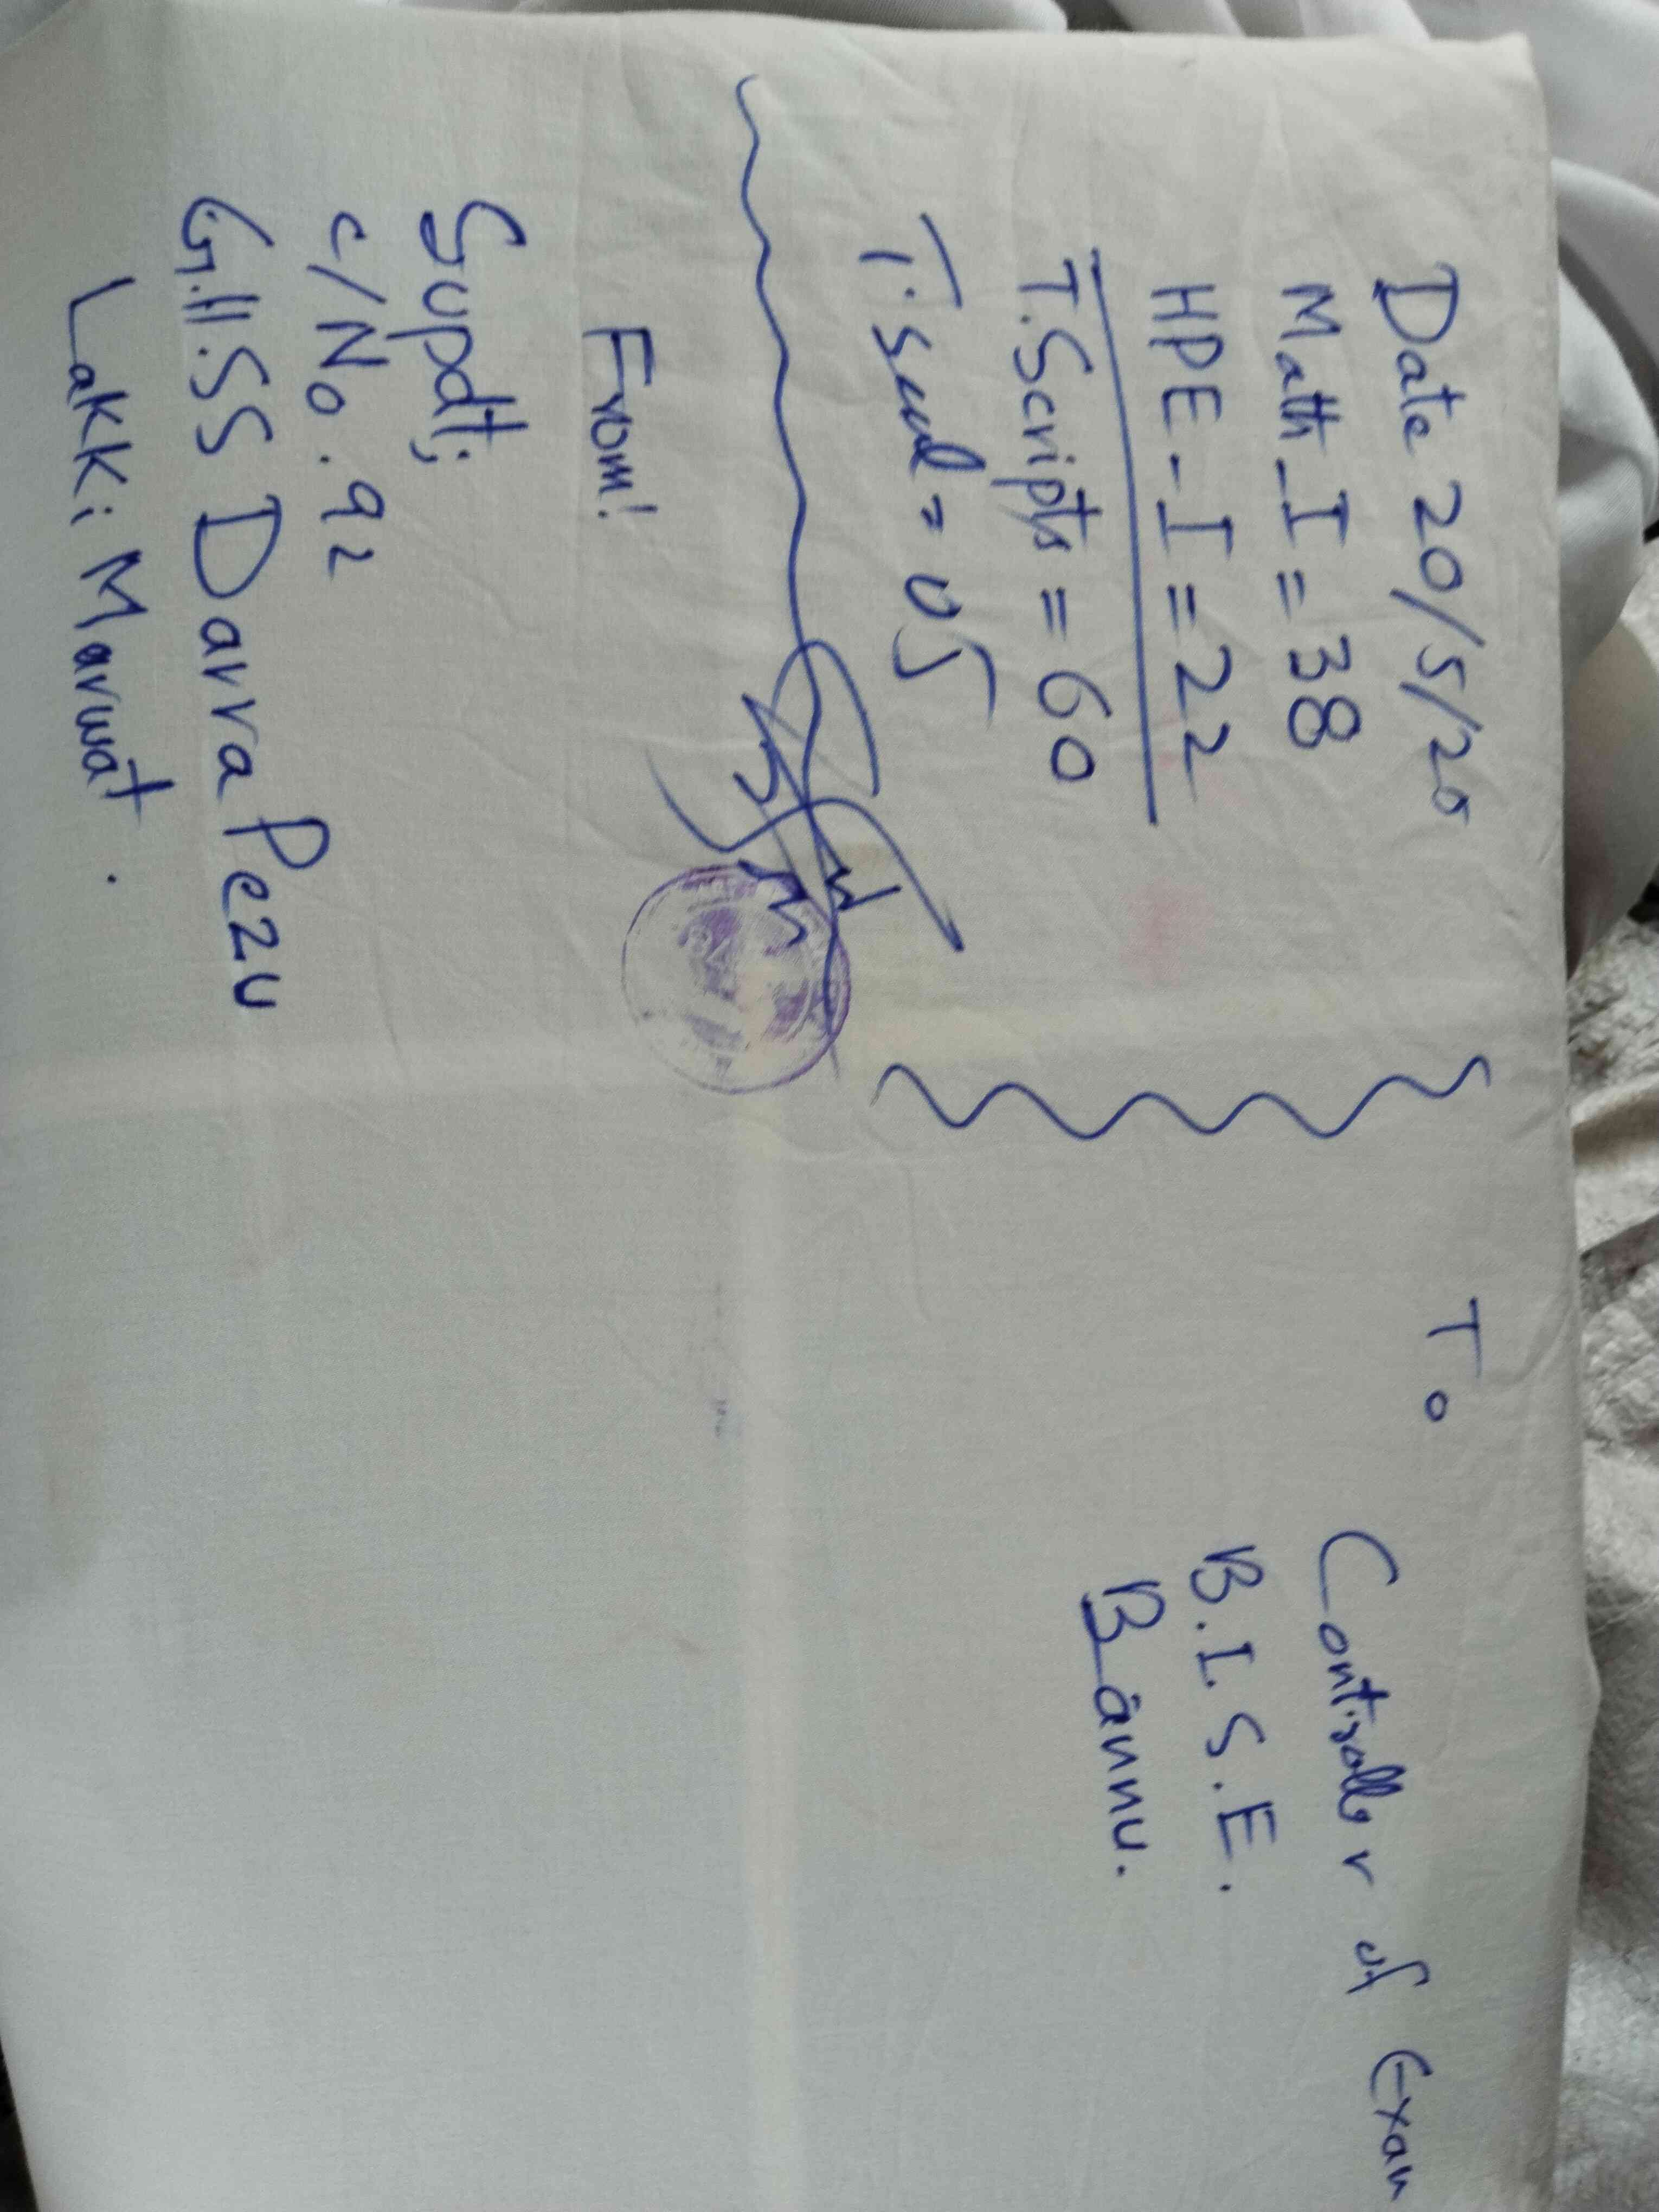 Date 20/5/20
Math-I = 38
HPE-I = 22
T.Scripts = 60
T.Seal = 05
To
Controller of Exam
B.I.S.E.
Bannu.
From!
Supdt;
C/No. 92
G.H.SS Darra Pezu
Lakki Marwat.